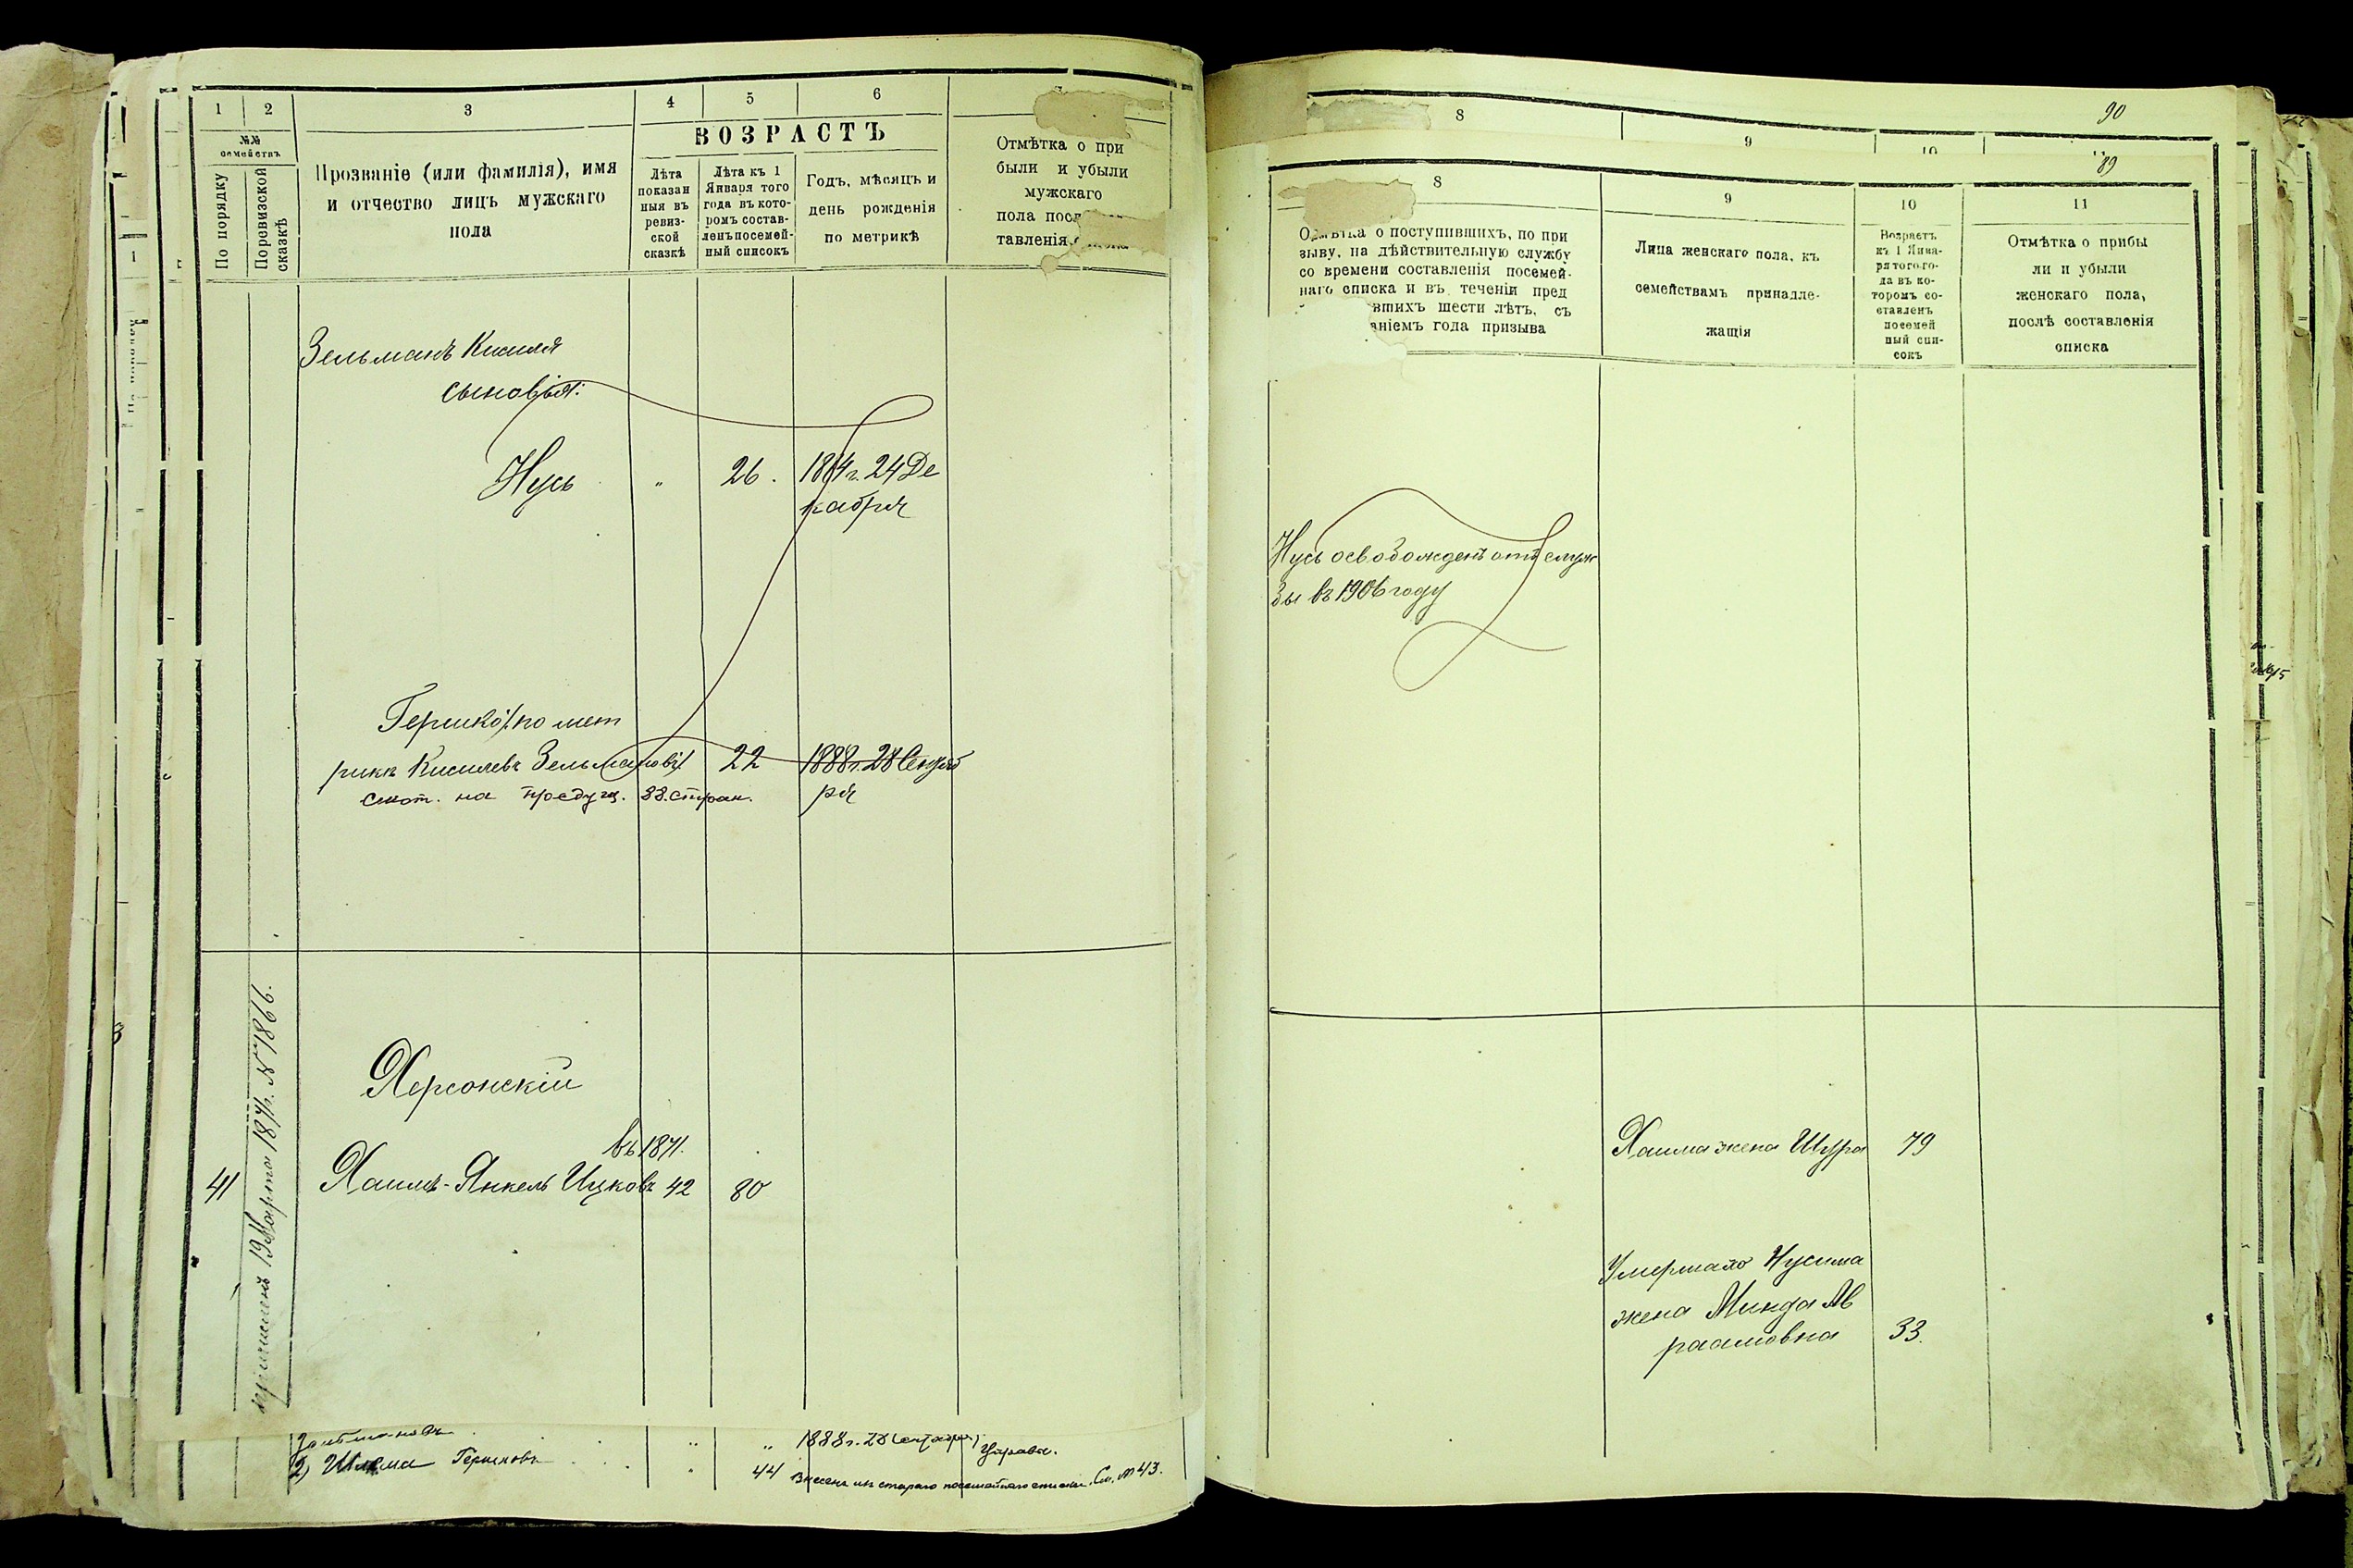 1 2 3 4 5 6
№№ семействъ
По порядку
По ревизской сказкѣ
Прозваніе (или фамилія), имя
и отчество лицъ мужскаго
пола
ВОЗРАСТЪ
Лѣта
показан
ныя въ
ревиз-
ской
сказкѣ
Лѣта къ 1
Января того
года въ кото-
ромъ состав-
ленъ посемей-
ный списокъ
Годъ, мѣсяцъ и
день рожденія
по метрикѣ
Отмѣтка о при
были и убыли
мужскаго
пола
тавленія
Зельманъ Кисиля
сыновья:
Нусь " 26. 24 Де
кабря
Гершко /: по мет
рикѣ Кисилевъ Зельмановъ :/ 22 1888 г. 28 Сентяб
ря
смот. на предъид. 88. стран.
причисленъ 19 Марта 1871 г. № 1866.
Херсонскій
въ 1871.
41 Хаимъ-Янкель Ицковъ 42 80
1888 г. 28 Сентября
2) Шлема Гершковъ " 44 Внесенъ изъ стараго посемейнаго списка. См. № 43.
90
8 9 10
89
8 9 10 11
Отмѣтка о поступившихъ, по при
зыву, на дѣйствительную службу
со времени составленія посемей-
наго списка и въ теченіи пред
вшихъ шести лѣтъ, съ
аніемъ года призыва
Лица женскаго пола, къ
семействамъ принадле-
жащія
Возрастъ
къ 1 Янва-
ря того го-
да въ ко-
торомъ со-
ставленъ
посемей
ный спи-
сокъ
Отмѣтка о прибы
ли и убыли
женскаго пола,
послѣ составленія
списка
Нусь освобожденъ отъ служ
бы въ 1906 году
Хаима жена Шура 79
Умершаго Нусима
жена Минда Ав
раамовна 33.